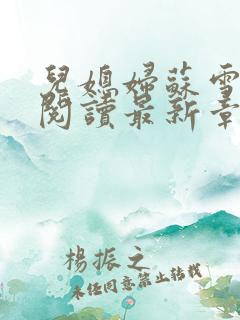 兒媳婦蘇雪
閱讀最新章
楊振之
未經同意禁止轉載